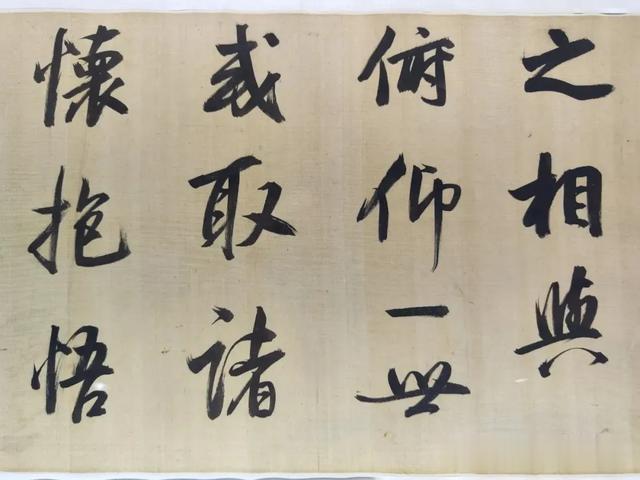 之相與
俯仰一世
或取諸
懷抱悟